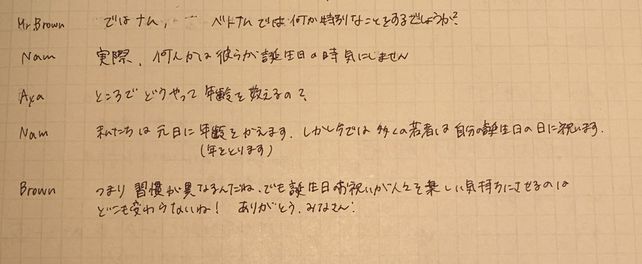 Mr.Brown ではナム, ベトナムでは何か特別なことをするでしょうか?
Nam 実際, 何人かは彼らが誕生日の時気にしません
Aya ところでどうやって年齢を数えるの?
Nam 私たちは元日に年齢をかえます. しかし今では多くの若者は自分の誕生日の日に祝います.
(年をとります)
Brown つまり習慣が異なるんだね. でも誕生日お祝いが人々を楽しい気持ちにさせるのは
どこも変わらないね! ありがとう, みなさん!